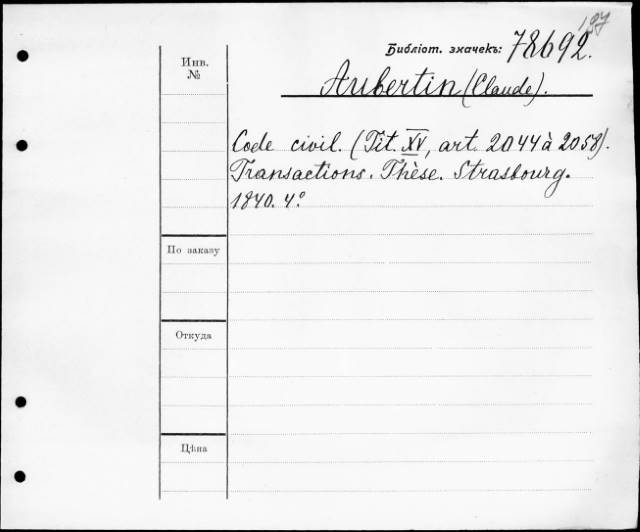 197
Библіот. значекъ: 78692.
Инв.
№
Aubertin (Claude).
Code civil. (Tit. XV, art. 2044 à 2058).
Transactions. Thèse. Strasbourg.
1840. 4º
По заказу
Откуда
Цѣна